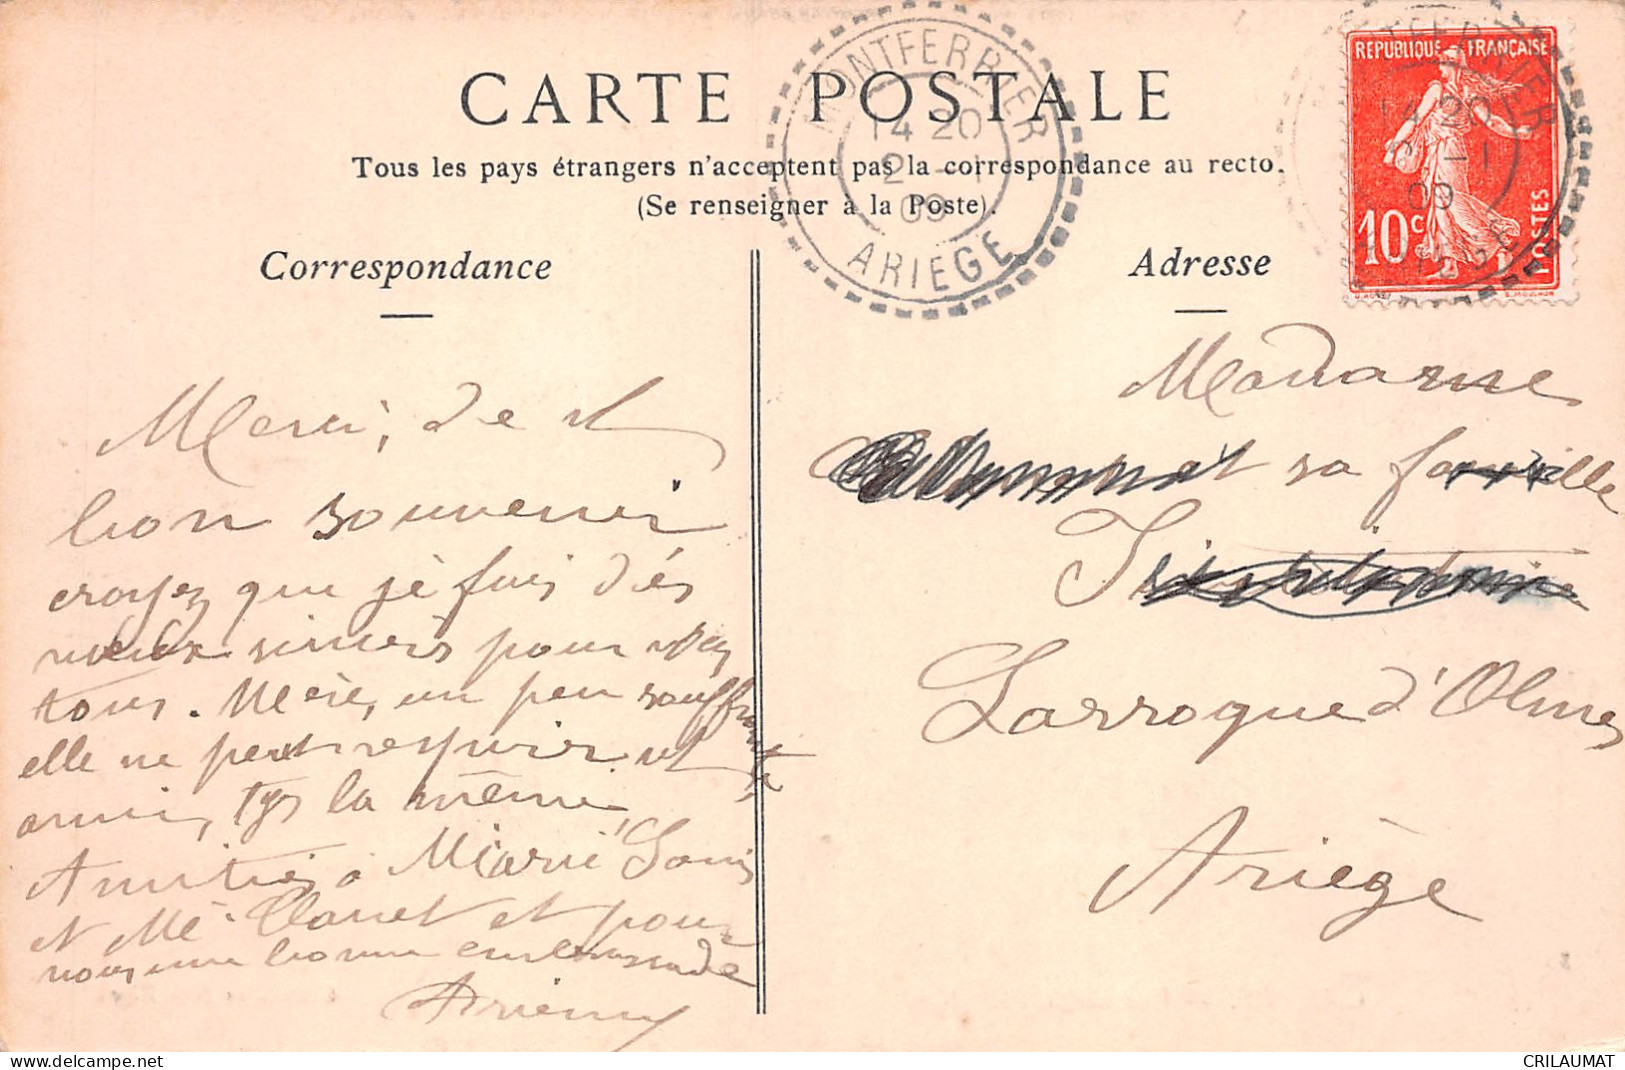 CARTE POSTALE
Tous les pays étrangers n'acceptent pas la correspondance au recto.
(Se renseigner à la Poste).
MONTFERRIER
14 20
2 -1
09
ARIEGE
REPUBLIQUE FRANÇAISE
10c
POSTES
MONTFERRIER
14 20
-1
09
Correspondance
Merci, de
bon souvenir
croyez que je fais dés
vœux sincers pour
tous. Mère, un peu souffrante
elle ne peut respirer et
ainsi, tjs la même,
Amitiés à Marie Louis
et Me et pour
vous une bonne embrassade
Adresse
Madame
et sa famille
Larroque d'Olmes
Ariège
delcampe.net
CRILAUMAT